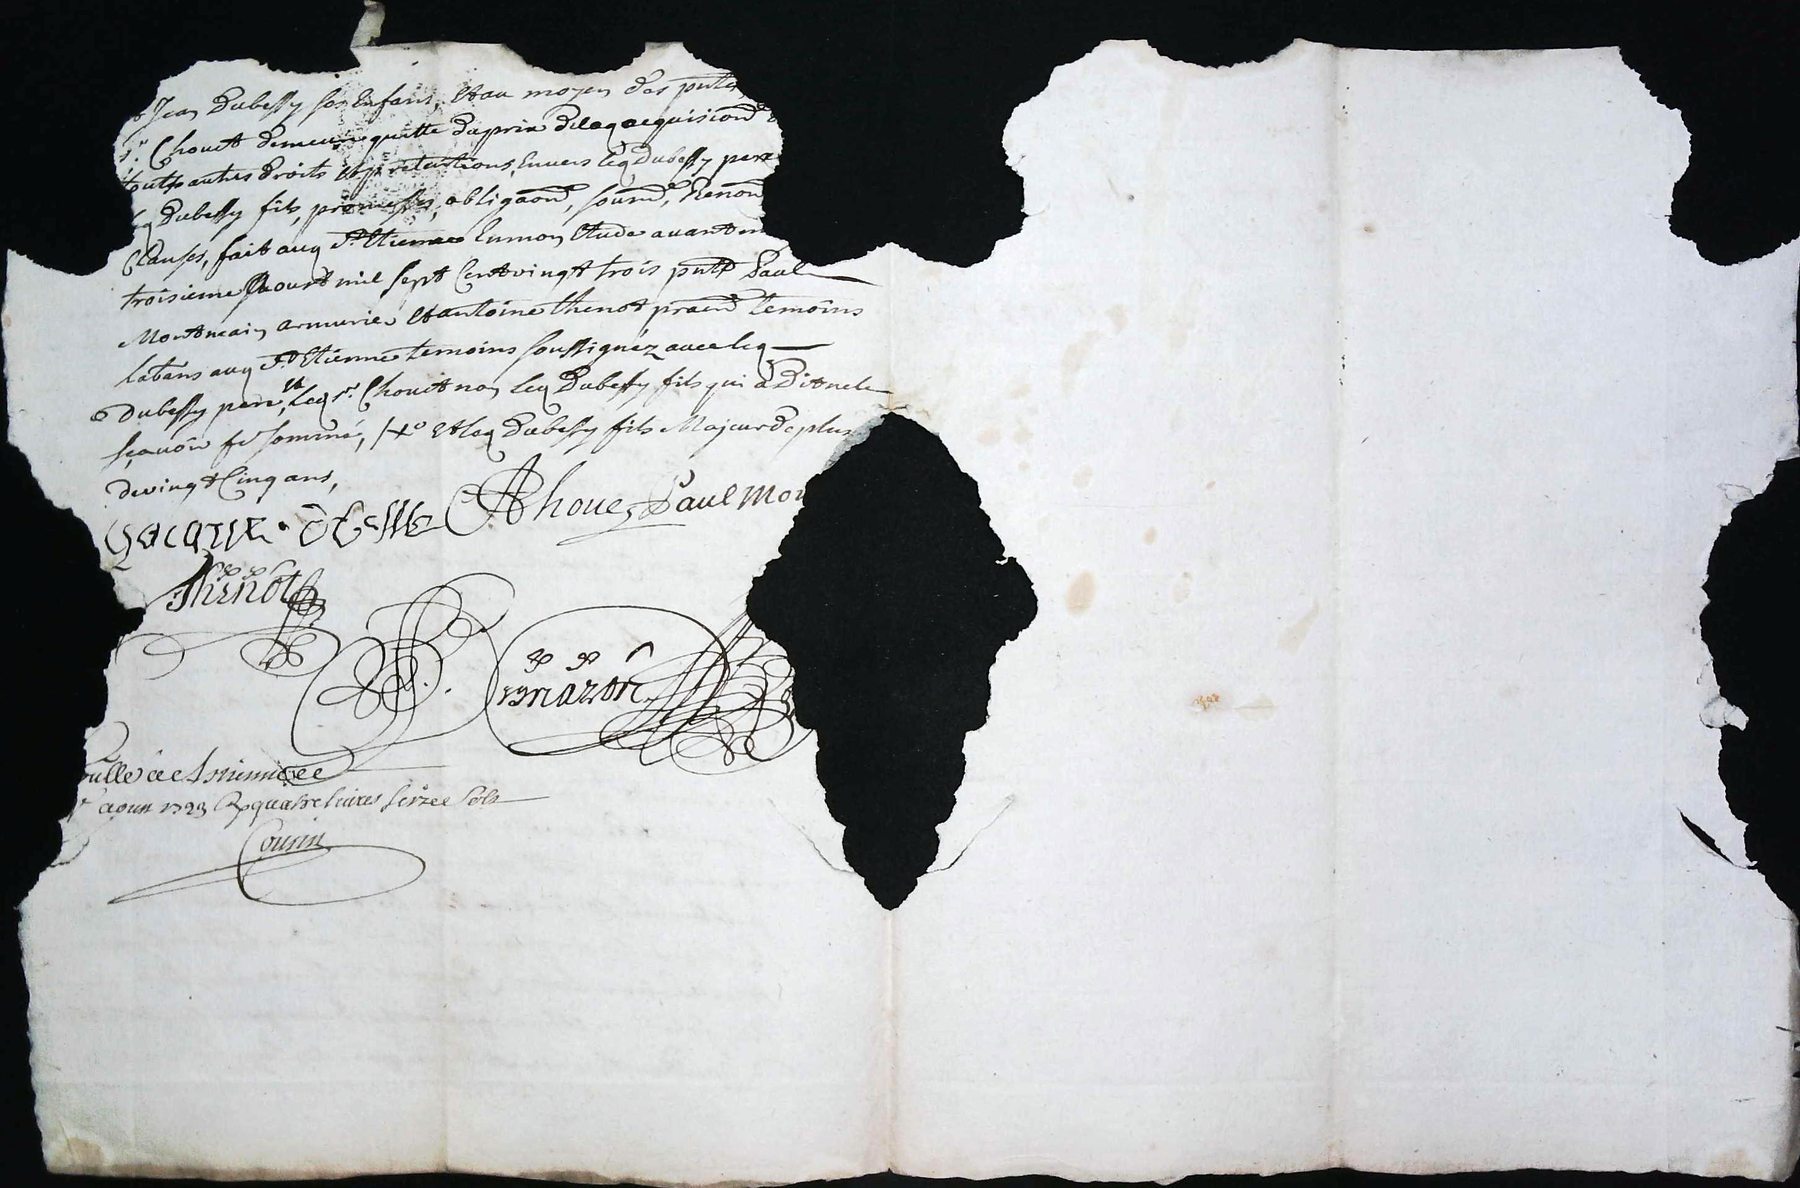 Jean Dubessy ses Enfans, et au moyen des pntes
Sr. Chouet demeure quitte du prix de lad acquisiond
toutes autres droits et pretentions Envers led Dubessy pere
led Dubessy fils, promesses, obligaond, soumd, Renond
Clauses, fait aud St. Etienne En mon Etude avant m
troisieme Aoust mil sept Cent vingt trois pntd Paul
Montmain armurier et antoine thenot pratd temoins
habtans aud St. Etienne temoins soussignéz avec led
Dubessy pere, et led sr. Chouet non led Dubessy fils qui a Dit ne le
sçavoir fe sommé, et led Dubessy fils Majeur de plus
de vingt Cinq ans,
Chouet Paul Mon
Thenot
Controllé a St Etienne le
aoust 1723 R quatre livres seize sols
Cousin